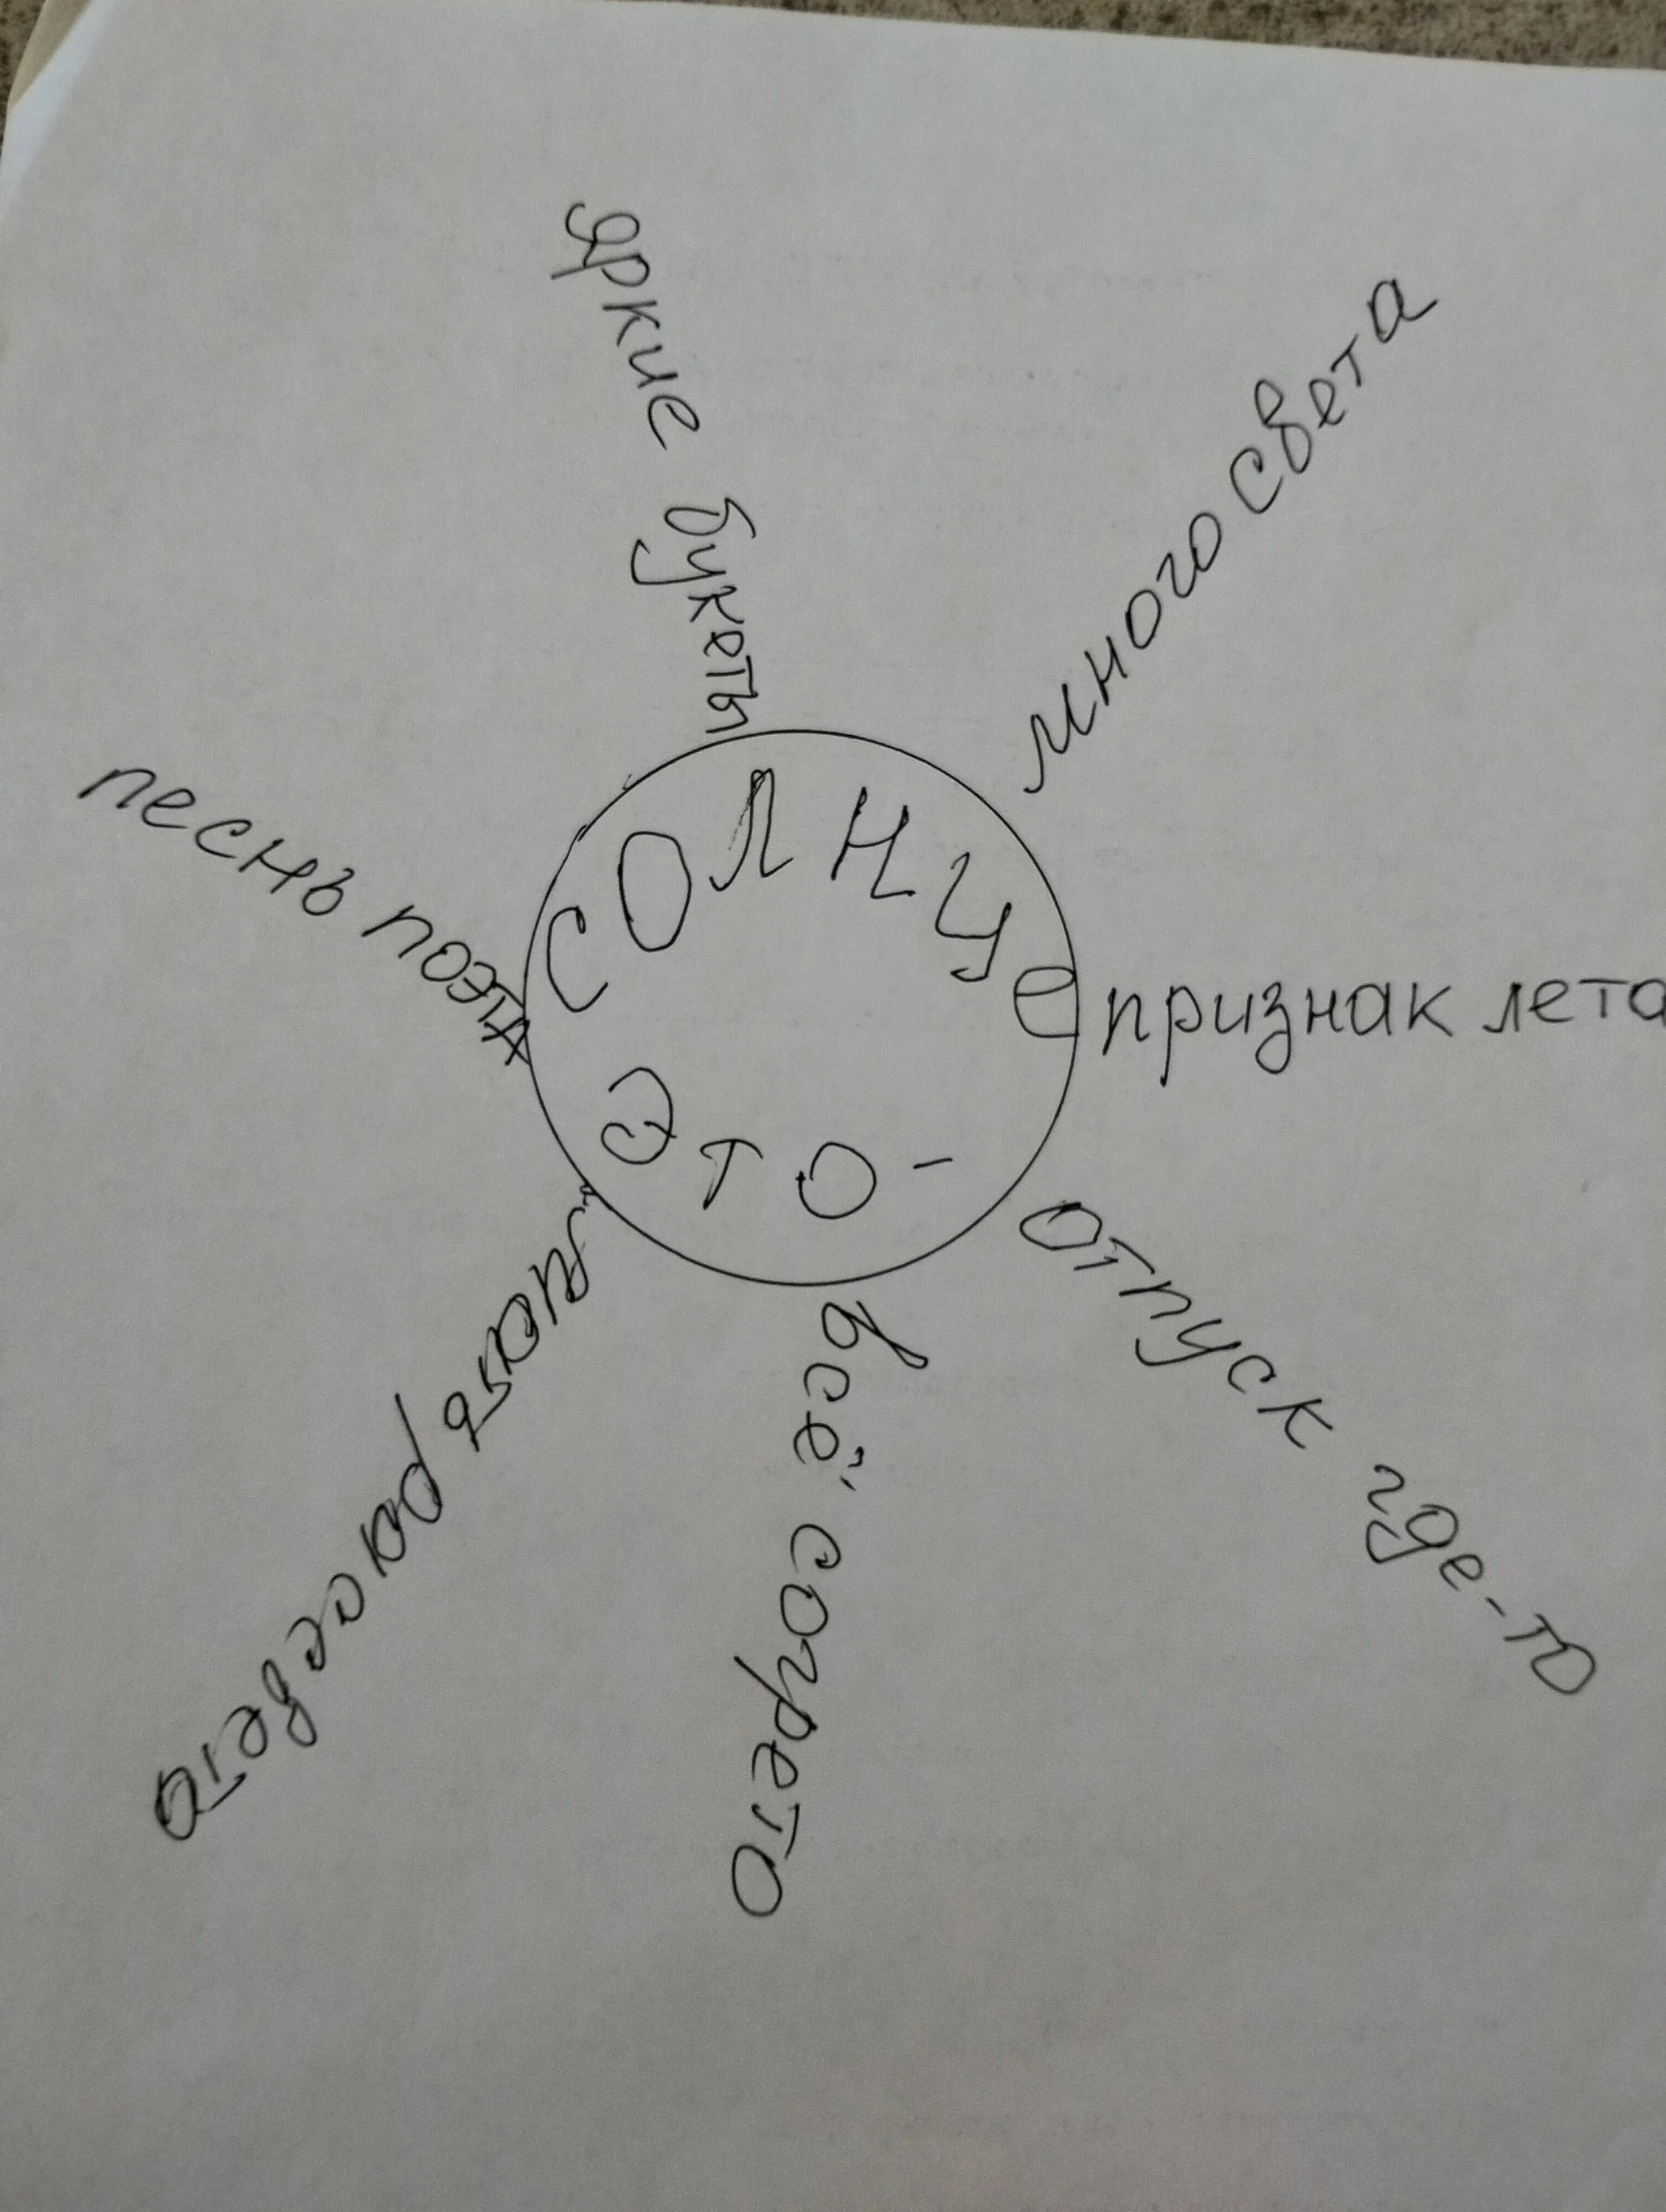 Солнце
это -
яркие букеты
много света
признак лета
отпуск где-то
всё согрето
рассвета
песнь поэта